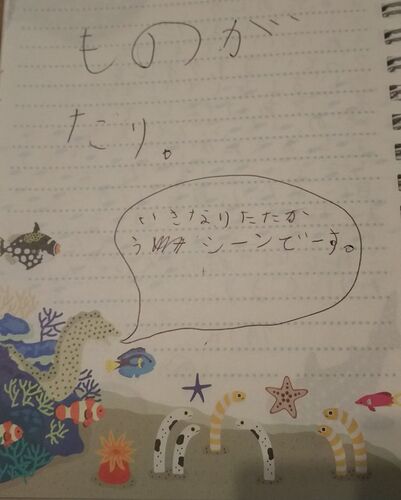 ものが
たり。
いきなりたたか
う シーンでーす。